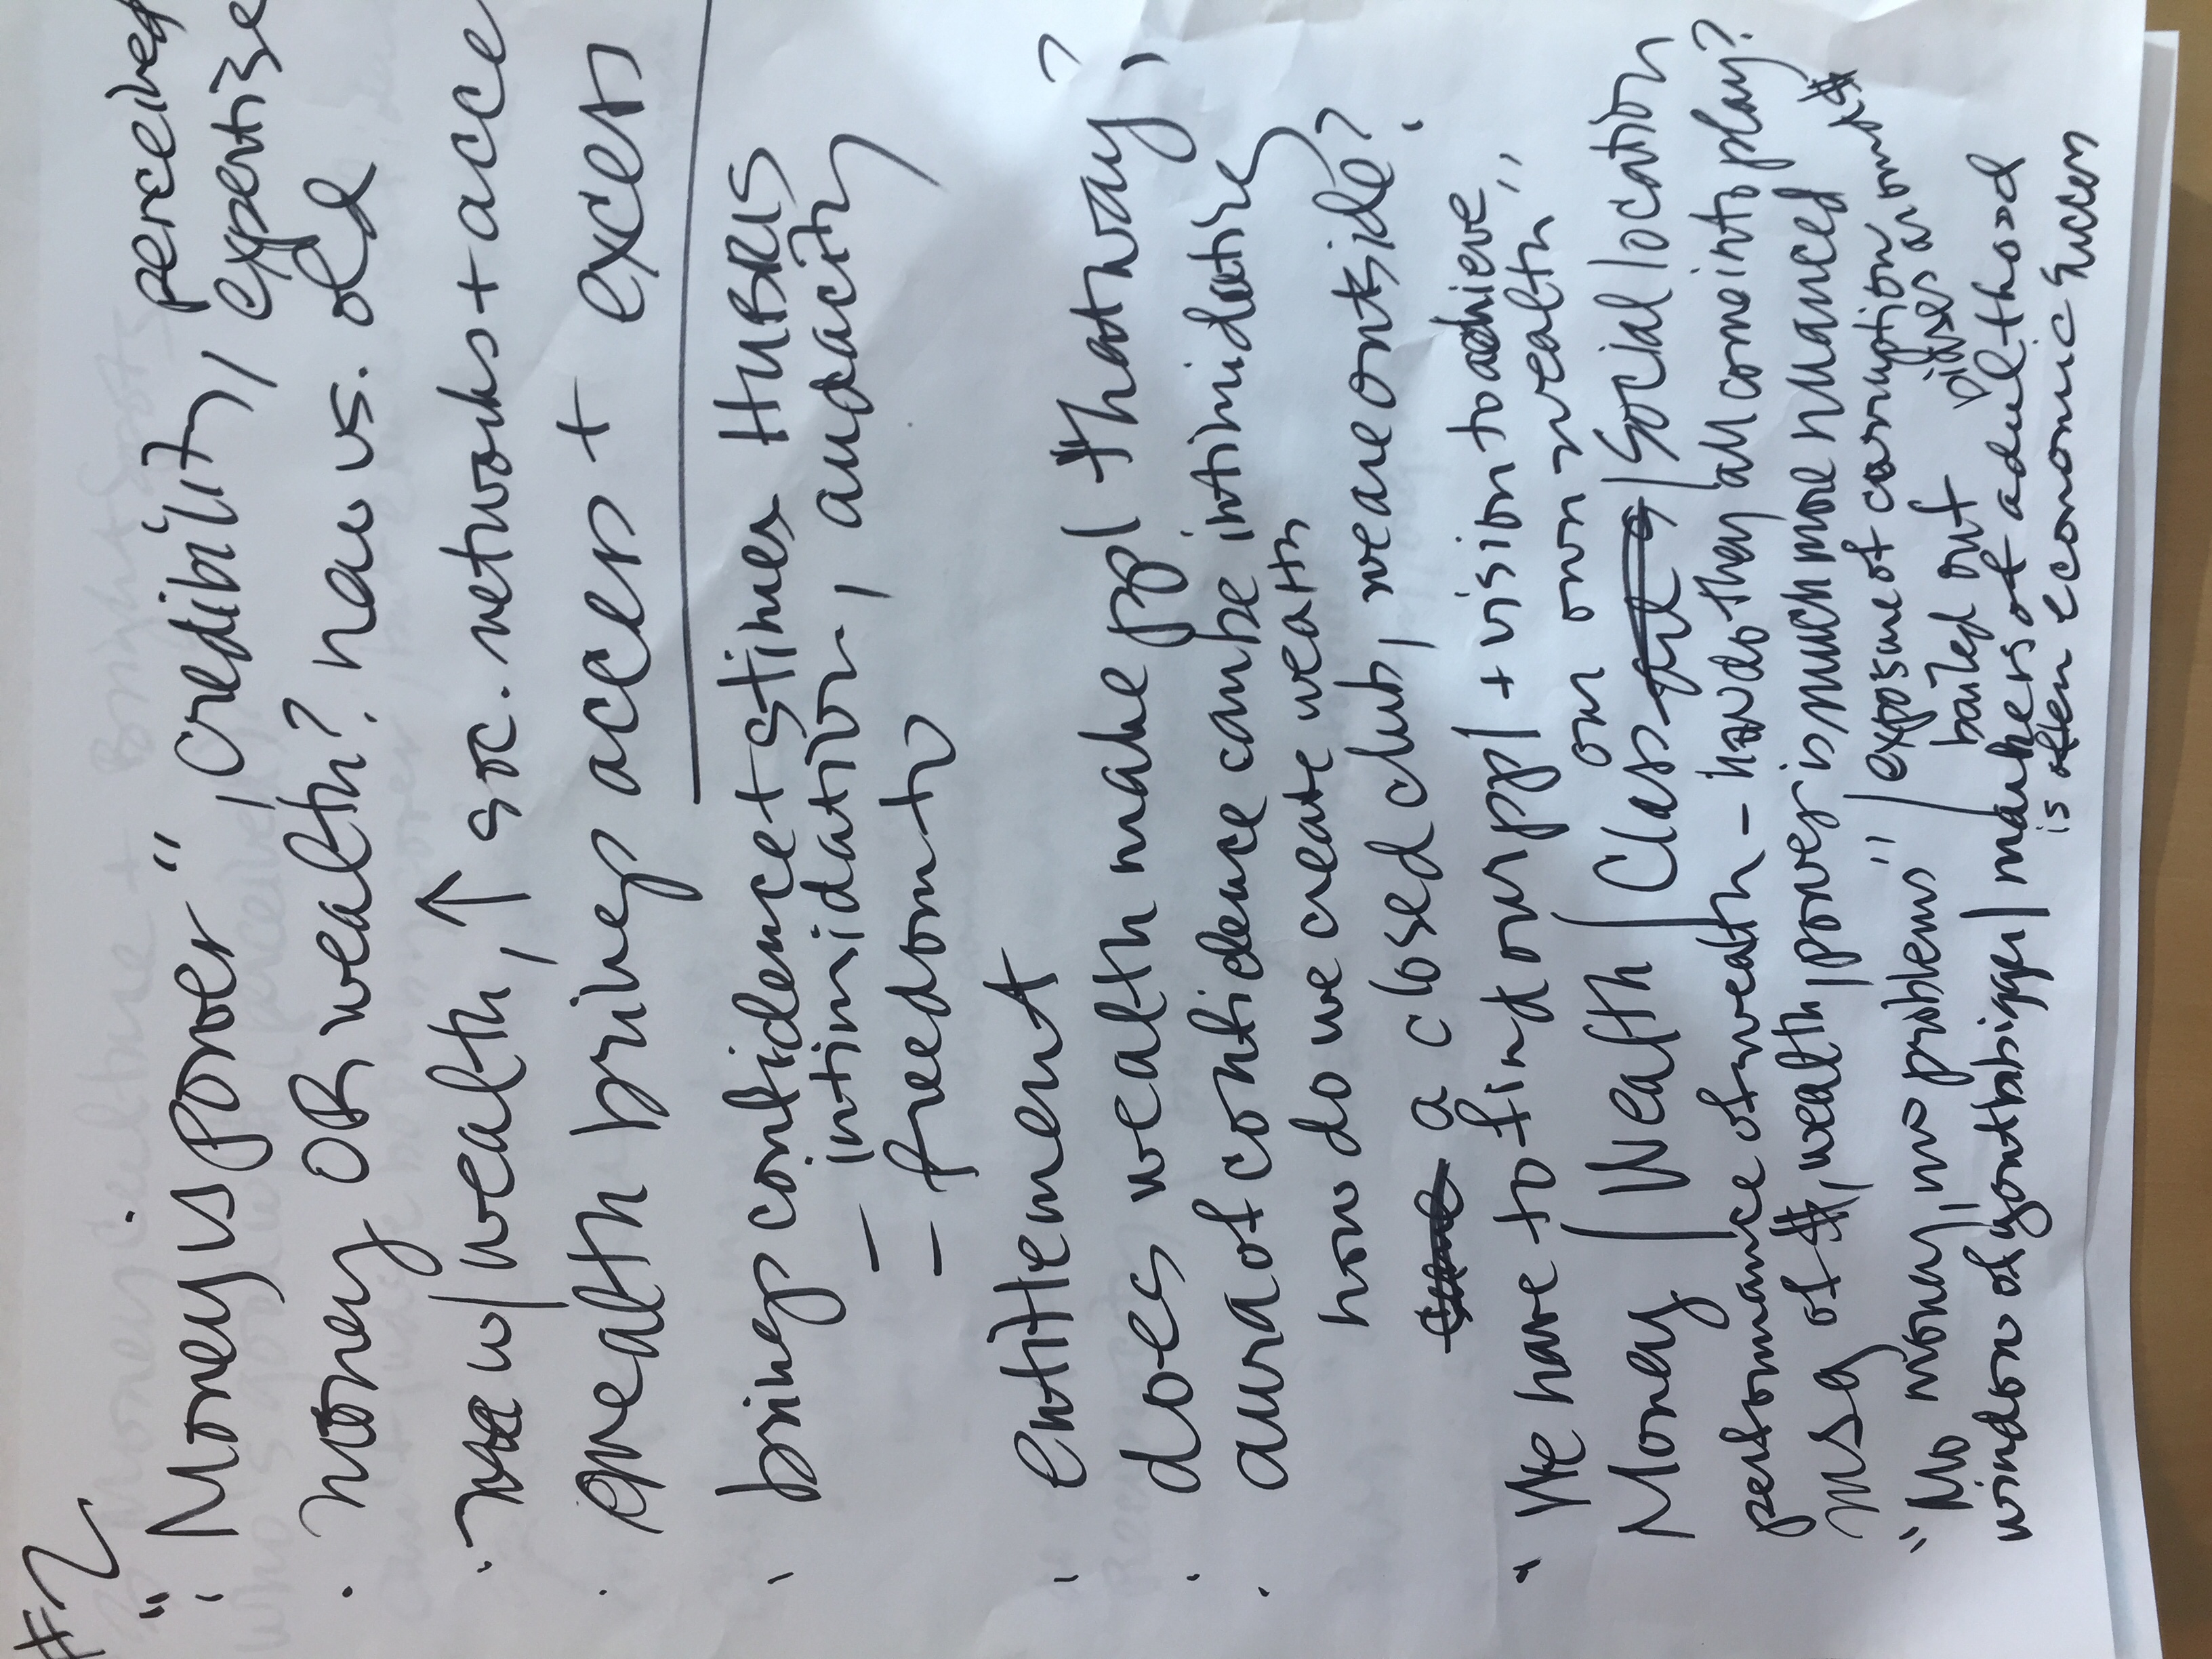 #2
"Money is power", credibility, perceived expertise
· money OR wealth? new vs. old
· w/ wealth, ↑ soc. networks + acce
· wealth brings access + excess
· brings confidence + stimes HUBRIS
– intimidation, audacity
– freedom to
· entitlement
· does wealth make ppl that way?
· aura of confidence can be intimidating,
how do we create wealth
a closed club, we are outside?
· "We have to find our ppl + vision to achieve
our own wealth"
Money | Wealth | Class | Social location
performance of wealth – how do they all come into play?
msg of $, wealth, power is much more nuanced
"No money, no problems" | exposure of corruption
bailed out
window of | markers of adulthood
is often economic success